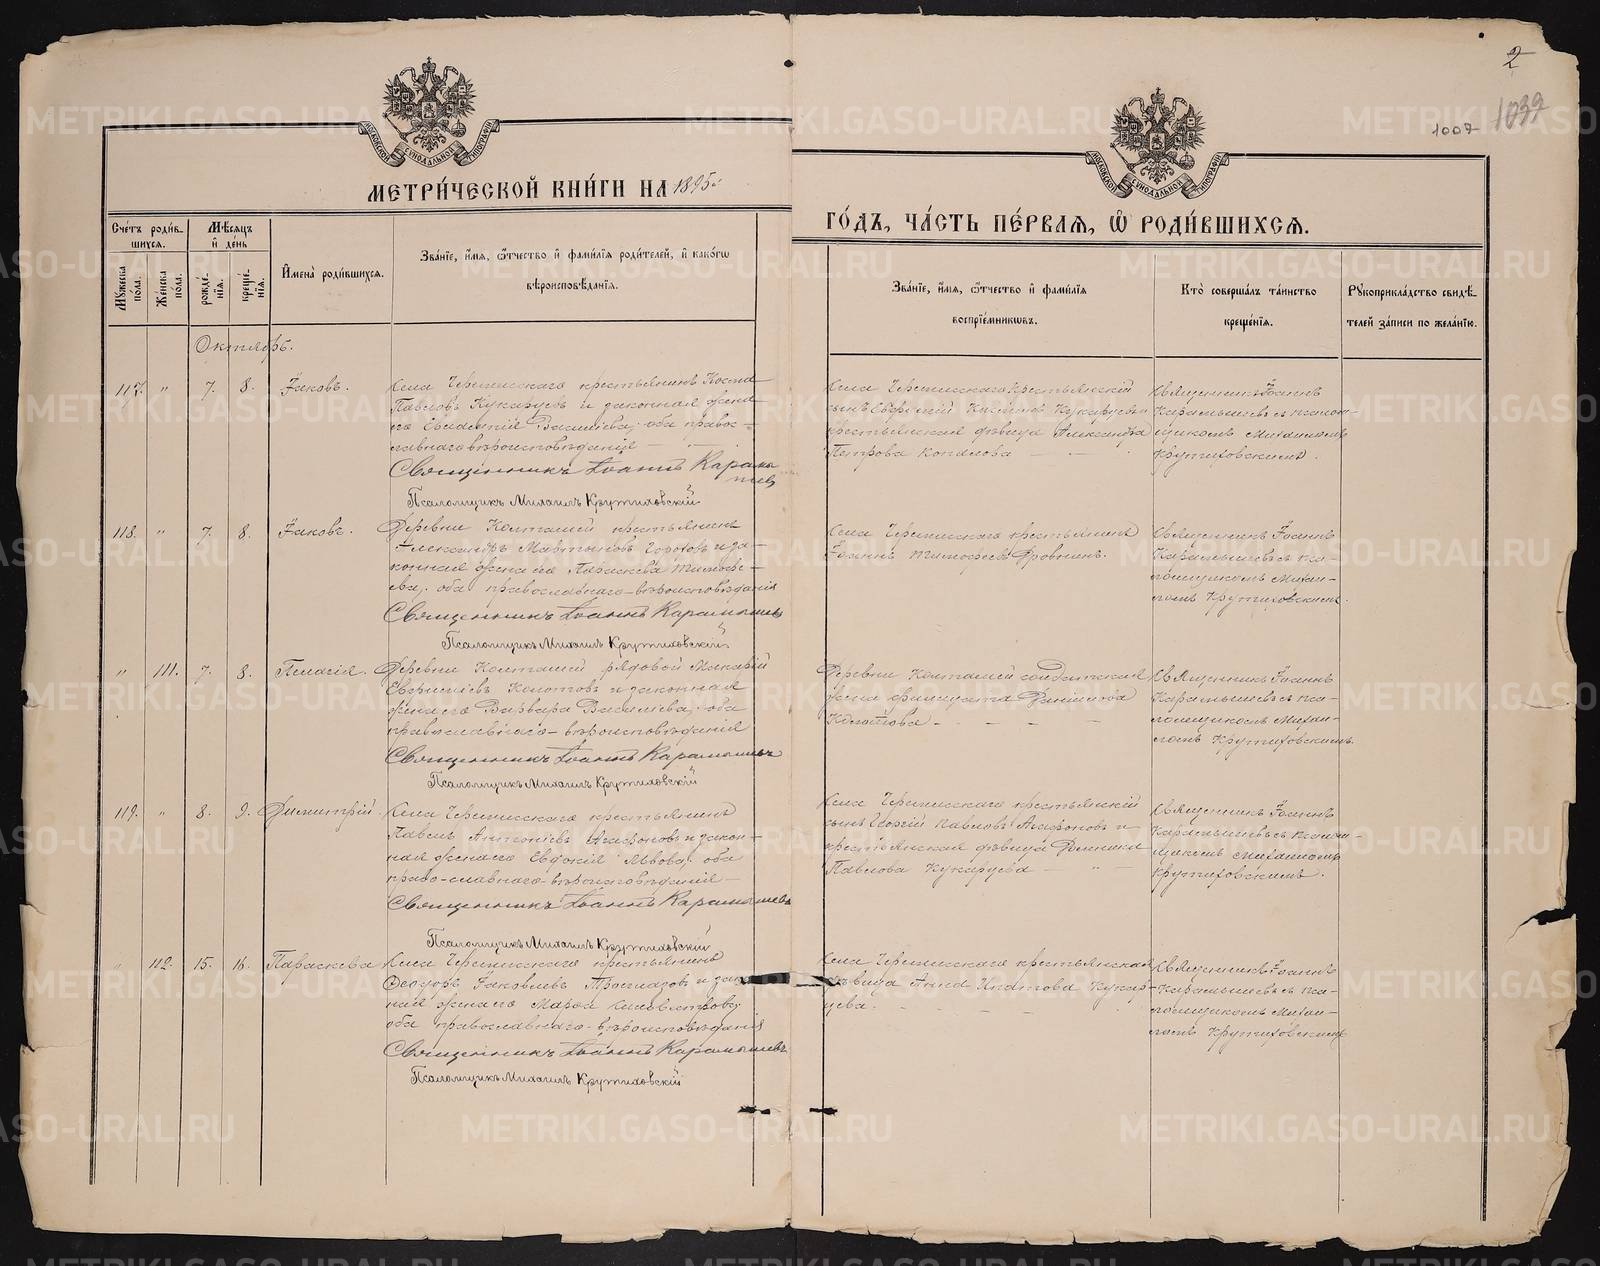 2
1007
1039
МОСКОВСКОЙ СѴНОДАЛЬНОЙ ТИПОГРАФІИ
МОСКОВСКОЙ СѴНОДАЛЬНОЙ ТИПОГРАФІИ
МЕТРИ́ЧЕСКОЙ КНИ́ГИ НА 1895й
ГО́ДЪ, ЧА́СТЬ ПЕ́РВАѦ, Ѡ҆ РОДИ́ВШИХСѦ.
Сче́тъ роди́в-
шихсѧ.
Мꙋжеска
по́ла.
Же́нска
по́ла.
Мѣ́сѧцъ
и҆ де́нь
рожде́-
нїѧ.
креще́-
нїѧ.
И҆мена̀ роди́вшихсѧ.
Зва́нїе, и҆́мѧ, ѻ҆́тчество и҆ фами́лїѧ роди́телей, и҆ како́гѡ
вѣроисповѣ́данїѧ.
Зва́нїе, и҆́мѧ, ѻ҆́тчество и҆ фами́лїѧ
воспрїе́мникѡвъ.
Кто̀ соверша́лъ та́инство
креще́нїѧ.
Рꙋкоприкла́дство свидѣ́-
телей за́писи по жела́нїю.
Октябрь.
117. " 7. 8. Іаковъ.
Села Черемисскаго крестьянинъ Косма
Павловъ Кукарцевъ и законная жена
его Евлампія Васильева; оба правос=
лавнаго вѣроисповѣданія
Священникъ Іоаннъ Карамы
шевъ
Псаломщикъ Михаилъ Крутиховскій
Села Черемисскаго крестьянскій
сынъ Евфимій Космннъ Кукарцевъ и
крестьянская дѣвица Александра
Петрова Копалова
Священникъ Іоаннъ
Карамышевъ съ псалом-
щикомъ Михаиломъ
Крутиховскимъ.
118. " 7. 8. Іаковъ.
Деревни Колташей крестьянинъ
Александръ Мартыновъ Гороховъ и за-
конная жена его Параскева Тимофе-
ева; оба православнаго вѣроисповѣданія
Священникъ Іоаннъ Карамышевъ
Псаломщикъ Михаилъ Крутиховскій
Села Черемисскаго крестьянинъ
Іоаннъ Тимофеевъ
Священникъ Іоаннъ
Карамышевъ съ пса-
ломщикомъ Михаи-
ломъ Крутиховскимъ.
" 111. 7. 8. Пелагія.
Деревни Колташей рядовой Макарій
Евфиміевъ Колотовъ и законная
жена его Варвара Васильева; оба
православнаго вѣроисповѣданія
Священникъ Іоаннъ Карамышевъ
Псаломщикъ Михаилъ Крутиховскій
Деревни Колташей солдатская
жена Фелицата Даніилова
Колотова
Священникъ Іоаннъ
Карамышевъ съ пса-
ломщикомъ Михаи-
ломъ Крутиховскимъ.
119. " 8. 9. Димитрій.
Села Черемисскаго крестьянинъ
Павелъ Антоніевъ Агафоновъ и закон-
ная жена его Евдокія Львова; оба
право-славнаго вѣроисповѣданія
Священникъ Іоаннъ Карамышевъ
Псаломщикъ Михаилъ Крутиховскій
Села Черемисскаго крестьянскій
сынъ Георгій Павловъ Агафоновъ и
крестьянская дѣвица
Павлова Кукарцева
Священникъ Іоаннъ
Карамышевъ съ псалом-
щикомъ Михаиломъ
Крутиховскимъ.
" 112. 15. 16. Параскева
Села Черемисскаго крестьянинъ
Ѳеодоръ Іаковлевъ и закон
ная жена его Марѳа
оба православнаго вѣроисповѣданія
Священникъ Іоаннъ Карамышевъ
Псаломщикъ Михаилъ Крутиховскій
Села Черемисскаго крестьянская
дѣвица Анна Ипатова Кукар-
цева.
Священникъ Іоаннъ
Карамышевъ съ пса-
ломщикомъ Михаи-
ломъ Крутиховскимъ
METRIKI.GASO-URAL.RU